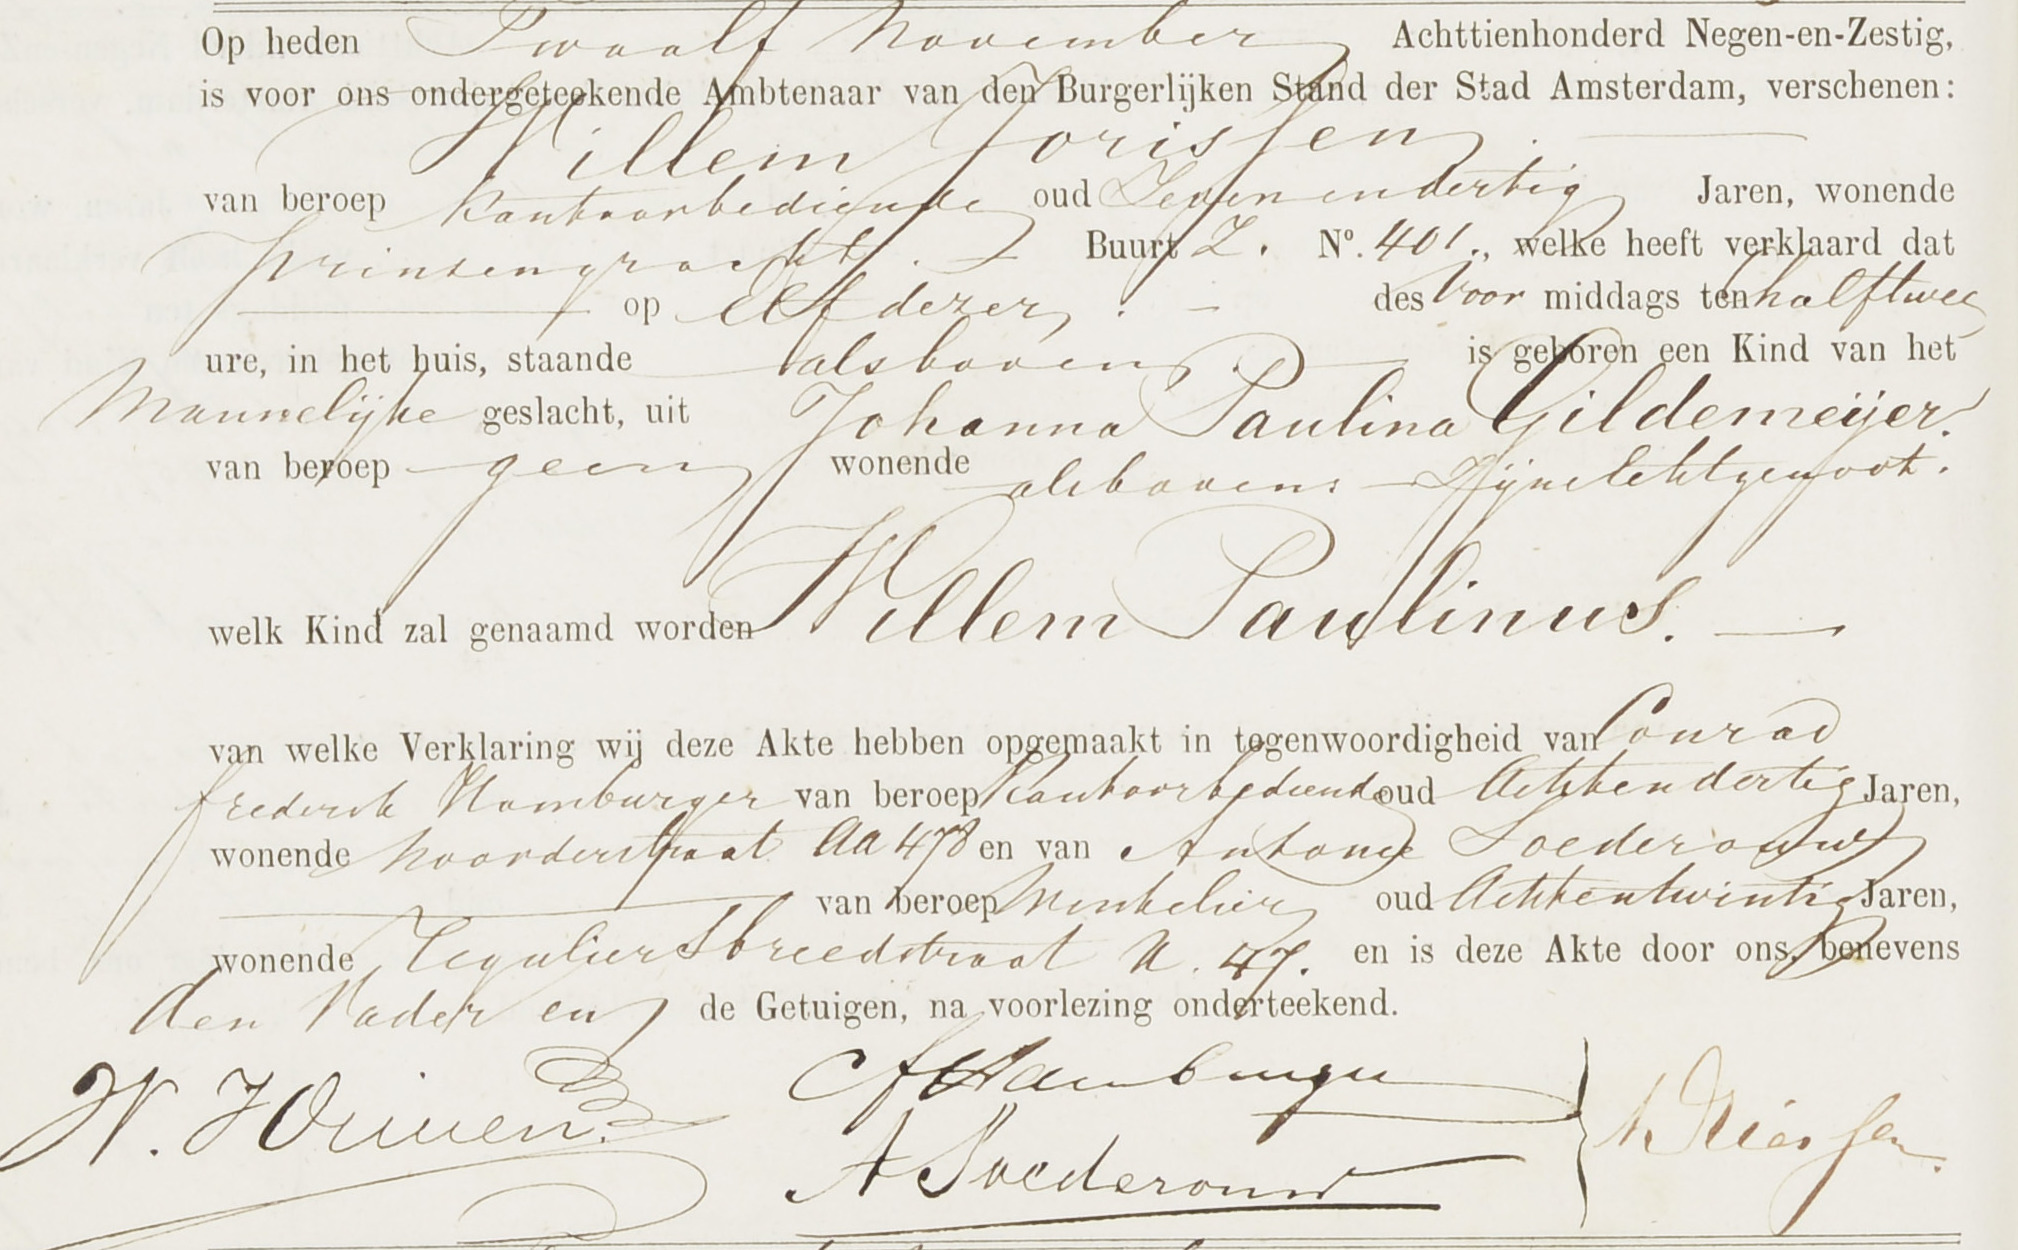 Op heden Twaalf November Achttienhonderd Negen-en-Zestig,
is voor ons ondergeteekende Ambtenaar van den Burgerlijken Stand der Stad Amsterdam, verschenen:
Willem Jorissen.
van beroep Kantoorbediende oud Zeven endertig Jaren, wonende
Prinsengracht. Buurt Z. No. 401., welke heeft verklaard dat
op elf dezer, des Voor middags ten half twee
ure, in het huis, staande alsboven is geboren een Kind van het
Mannelijke geslacht, uit Johanna Paulina Gildemeijer.
van beroep geen wonende alsboven: Zijne Echtgenoot.
welk Kind zal genaamd worden Willem Paulinus.
van welke Verklaring wij deze Akte hebben opgemaakt in tegenwoordigheid van Conrad
frederik Hamburger van beroep Kantoorbediende oud Achtendertig Jaren,
wonende Noorderstraat AA 478 en van Antonie Soederouw
van beroep Winkelier oud Achtentwintig Jaren,
wonende Reguliersbreedstraat N. 47. en is deze Akte door ons, benevens
den Vader en de Getuigen, na voorlezing onderteekend.
W. Jorissen. CF Hamburger
A Soederouw